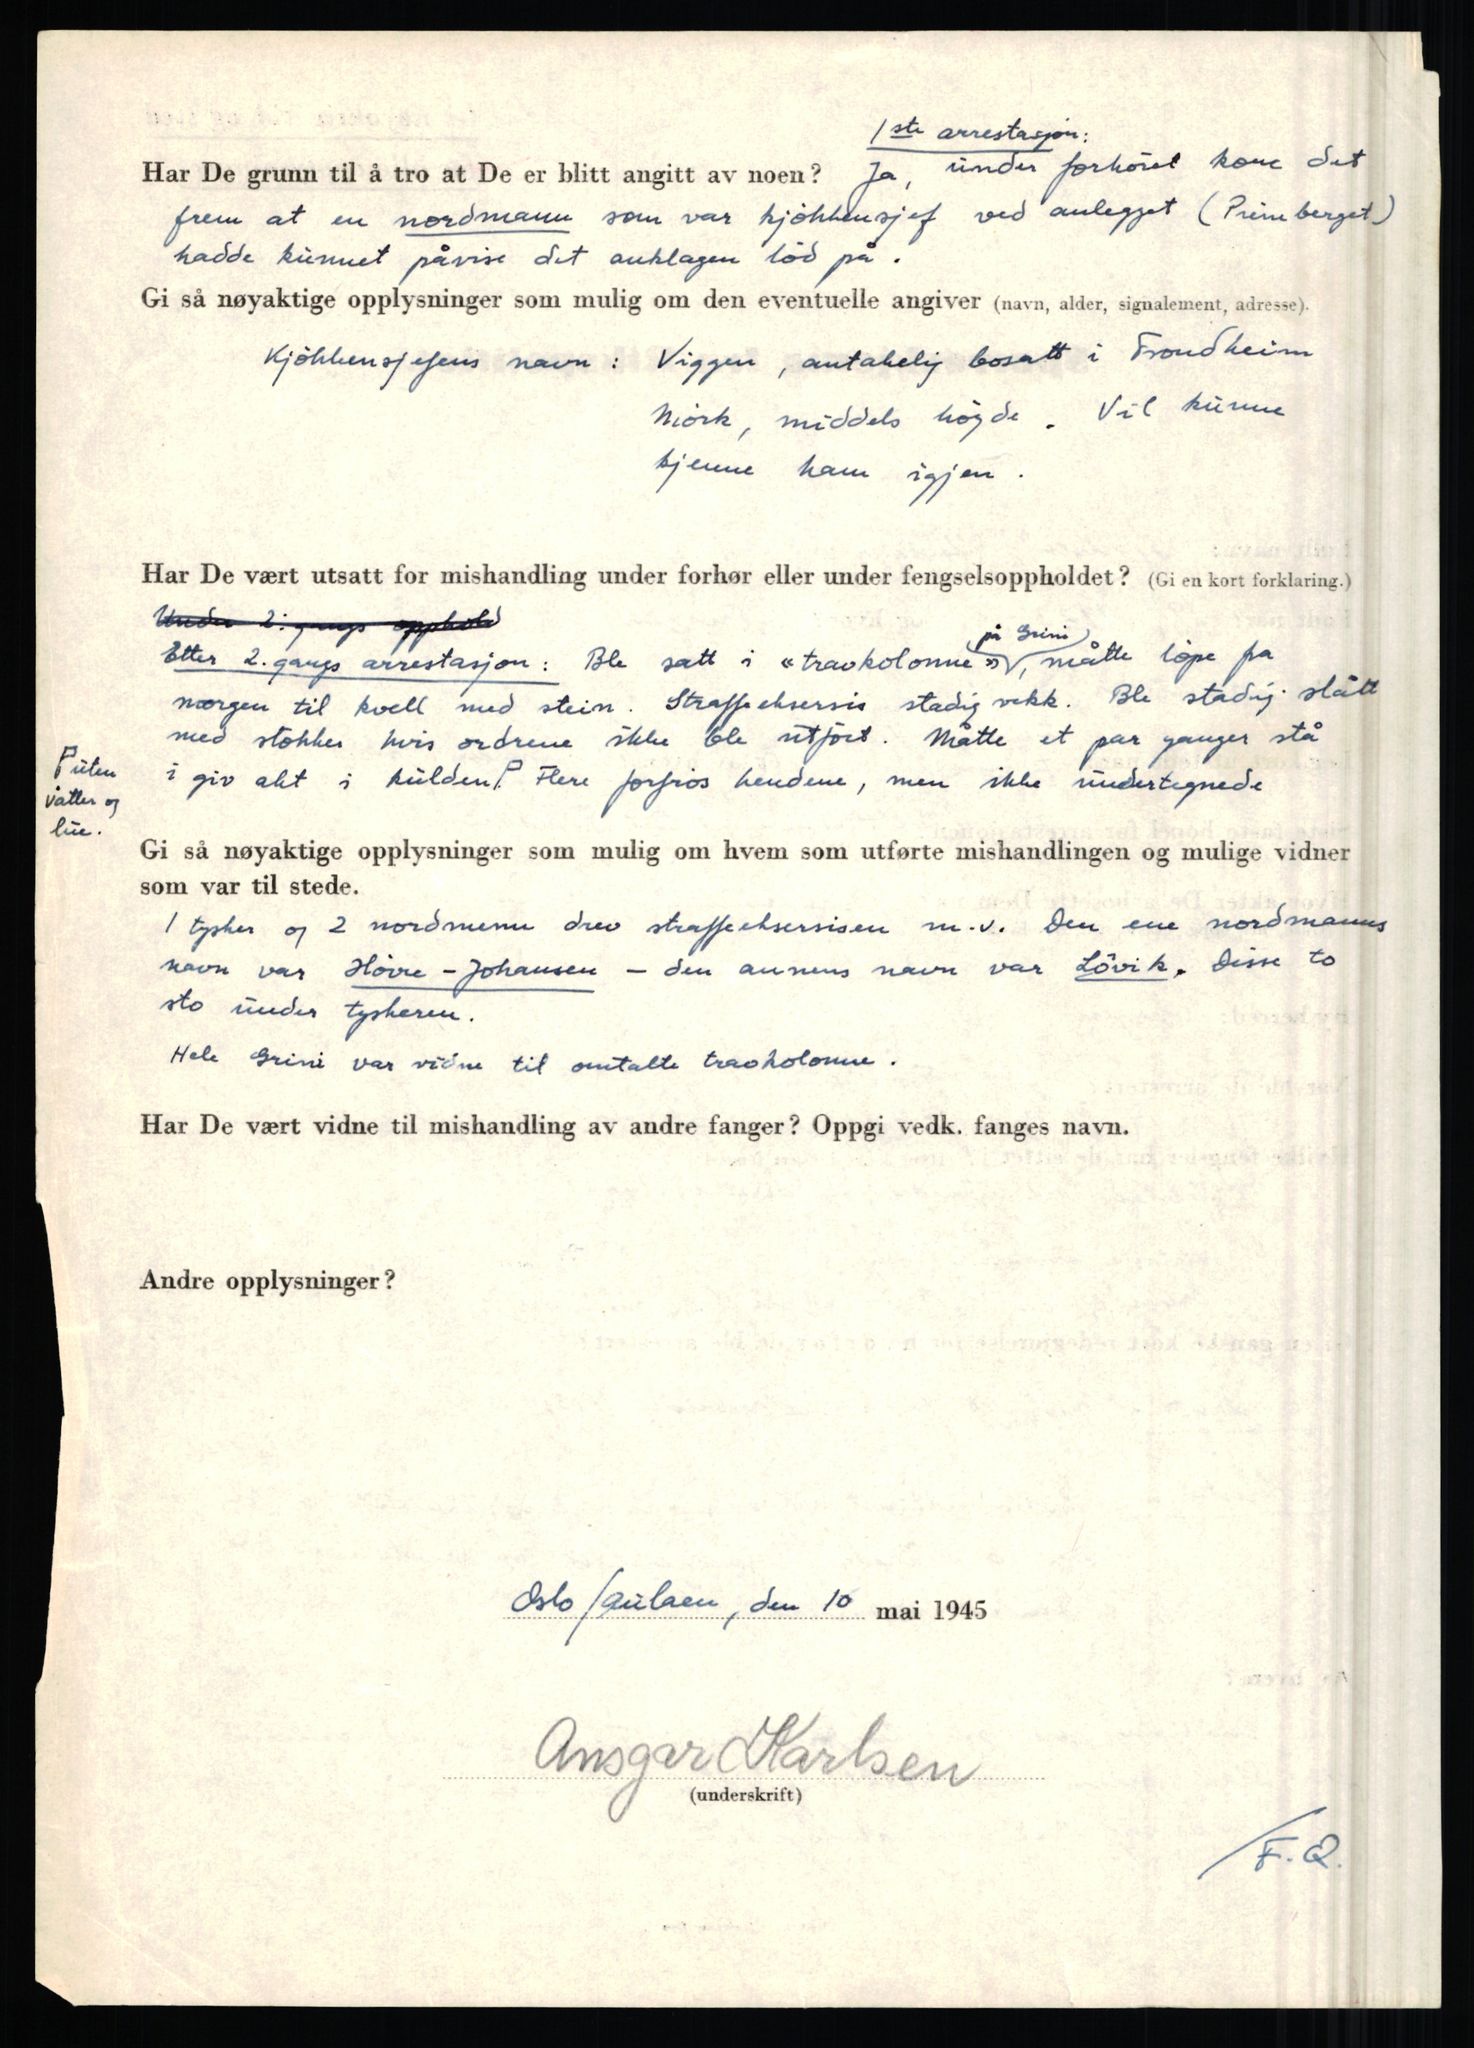 1ste arrestasjon:
Har De grunn til å tro at De er blitt angitt av noen? Ja, under forhöret kom det
frem at en nordmann som var kjökkensjef ved anlegget (Primberget)
hadde kunnet påvise det anklagen löd på.
Gi så nøyaktige opplysninger som mulig om den eventuelle angiver (navn, alder, signalement, adresse).
Kjökkensjefens navn: Viggen, antakelig bosatt i Trondheim
Mörk, middels höyde. Vil kunne
kjenne ham igjen.
Har De vært utsatt for mishandling under forhør eller under fengselsoppholdet? (Gi en kort forklaring.)
Under 2. gangs opphold
Etter 2. gangs arrestasjon: Ble satt i «travkolonne» på Grini, måtte löpe fra
morgen til kvell med stein. Straffeeksersis stadig vekk. Ble stadig slått
med stokker hvis ordrene ikke ble utfört. Måtte et par ganger stå
i giv akt i kulden. Flere forfrös hendene, men ikke undertegnede
uten
våtter og
lue.
Gi så nøyaktige opplysninger som mulig om hvem som utførte mishandlingen og mulige vidner
som var til stede.
1 tysker og 2 nordmenn drev straffeeksersisen m.v. Den ene nordmanns
navn var Hövre-Johansen – den annens navn var Lövik. Disse to
sto under tyskeren.
Hele Grini var vidne til omtalte travkolonne.
Har De vært vidne til mishandling av andre fanger? Oppgi vedk. fanges navn.
Andre opplysninger?
Oslo/Aulaen, den 10 mai 1945
Ansgar Karlsen
(underskrift)
/F.Q.